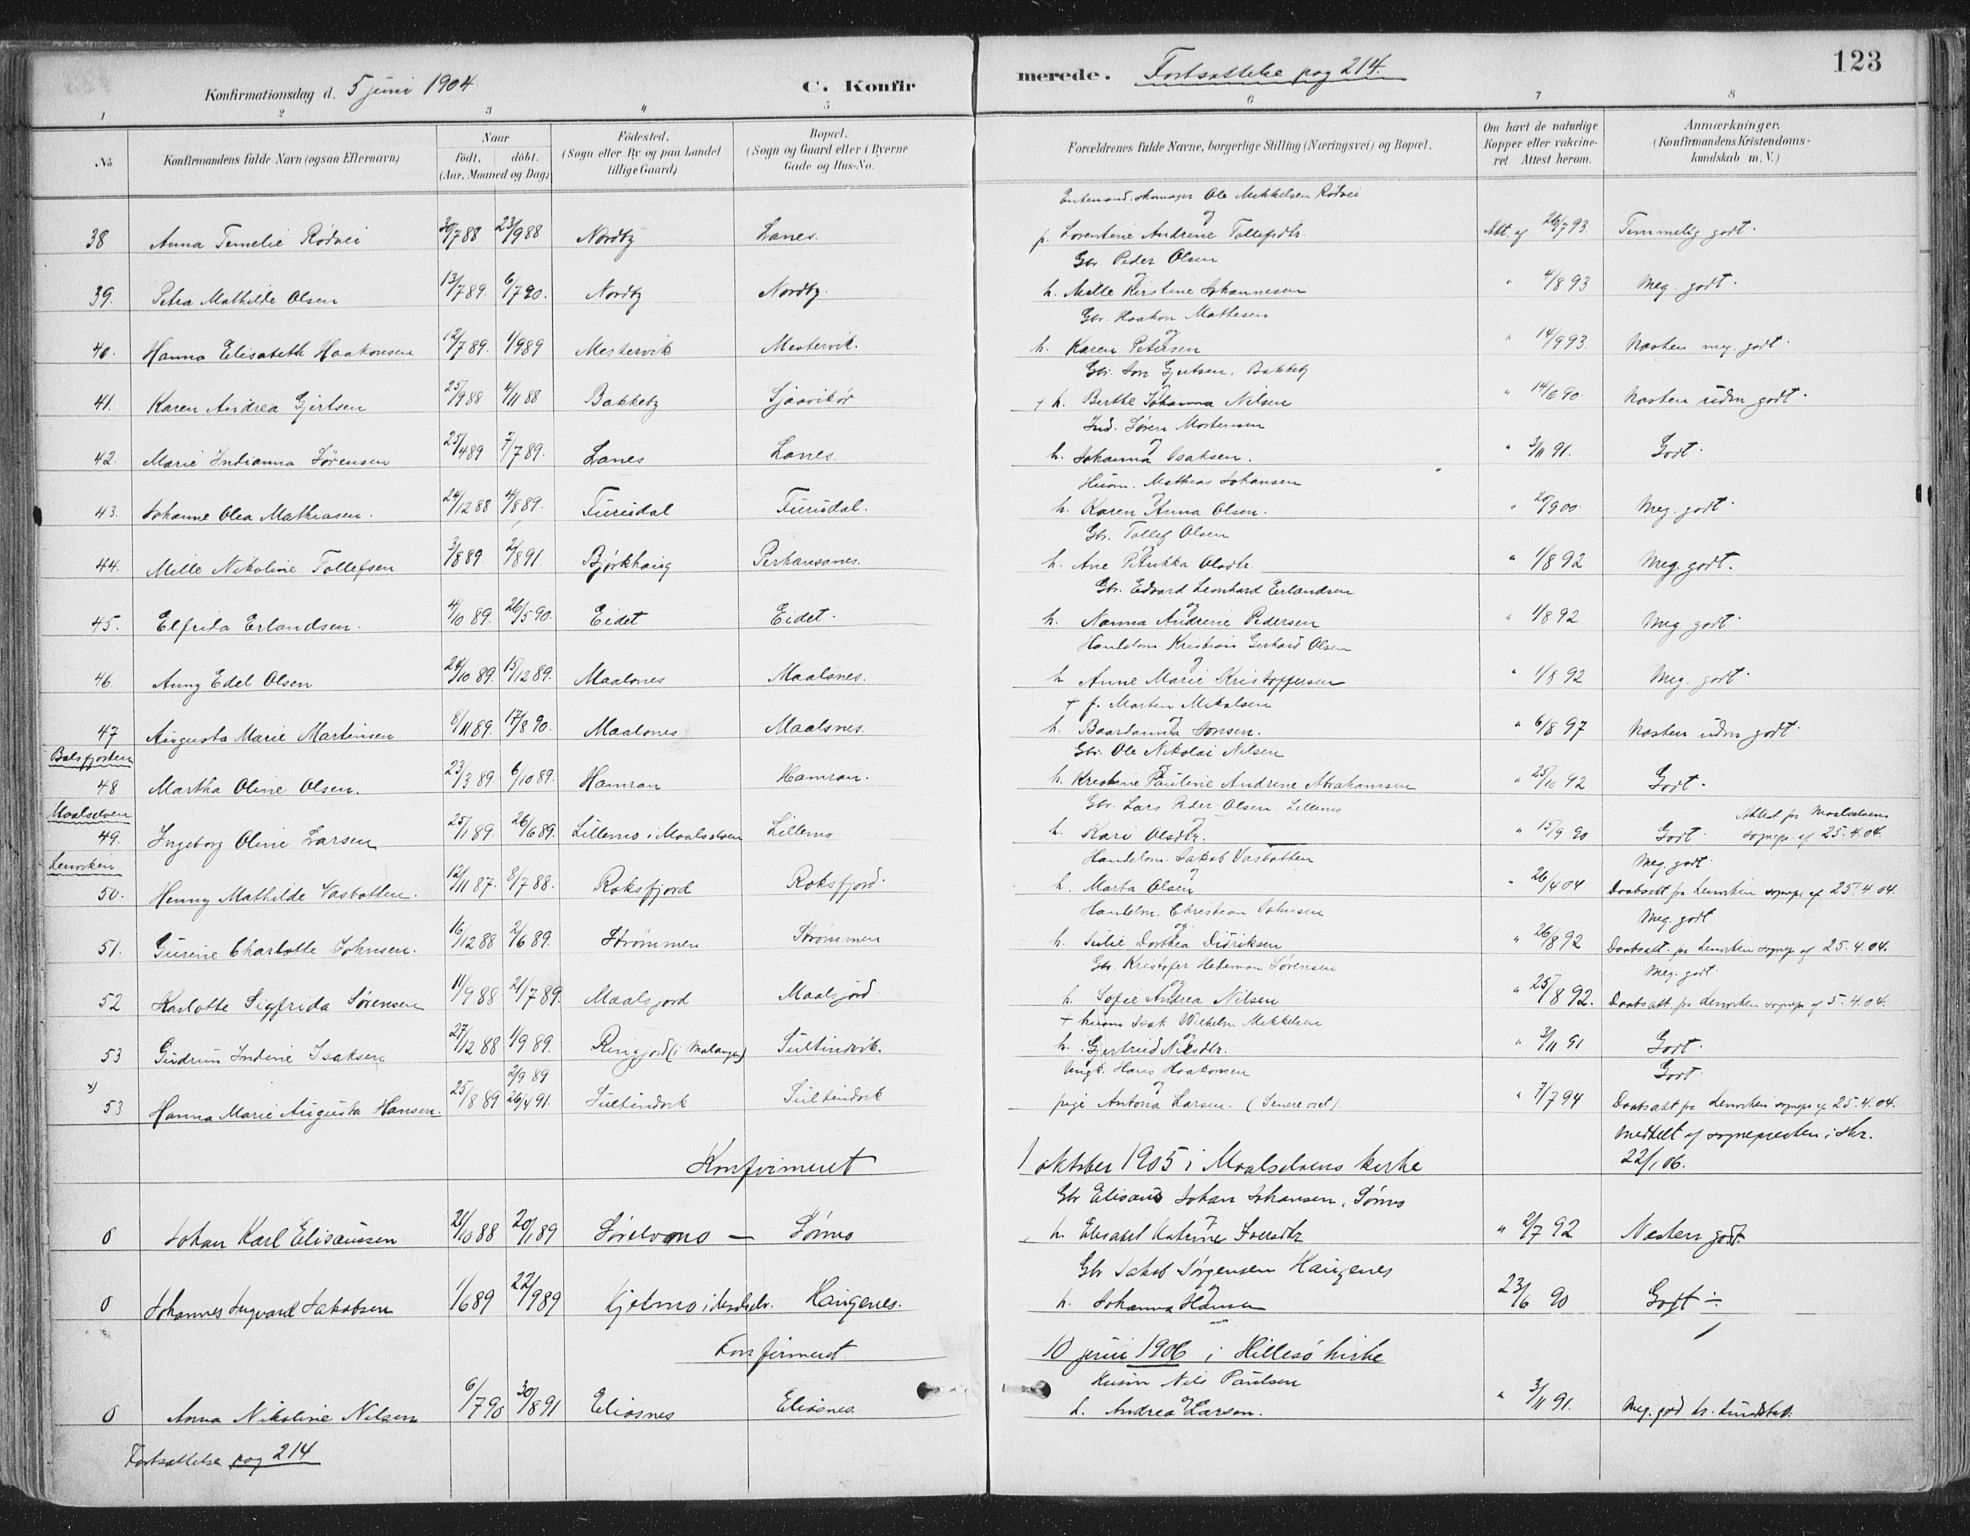 123
Konfirmationsdag d. 5 juni 1904
C. Konfirmerede. Fortsættelse pag 214.
1 2 3 4 5 6 7 8
No. Konfirmandens fulde Navn (ogsaa Efternavn) Naar födt. döbt. (Aar, Maaned og Dag) Födested. (Sogn eller By og paa Landet tillige Gaard) Bopæl. (Sogn og Gaard eller i Byerne Gade og Hus-No. Forældrenes fulde Navne, borgerlige Stilling (Næringsvei) og Bopæl. Om havt de naturlige Kopper eller vakcineret. Attest herom. Anmærkninger. (Konfirmandens Kristendomskundskab m. V.)
Ole Mikkelsen Rødvei
38 Anna Temelie Rødvei 30/7 88 23/9 88 Nordby Lanes. p. Lorentine Andrine Tollefsdtr. Att. af 26/7 93. Temmelig godt.
Gbr. Peder Olsen
39. Petra Mathilde Olsen 13/7 89. 6/7 90. Nordby Nordby. h. Mille Kirstine Johannesen " 4/8 93 Meg. godt.
Gbr. Haakon Mathisen
40. Hanna Elisabeth Haakonsen 12/7 89. 1/9 89 Mestervik Mestervik. h. Karen Petersen " 14/9 93. Næsten meg. godt.
Gbr. Jon Gjertsen, Bakkeby
41. Karen Andrea Gjertsen 25/9 88 4/11 88 Bakkeby + h. Berthe Johanna Nilsen " 14/6 90. Næsten udm godt.
Ind. Søren Mortensen
42. Marie Indianna Sørensen 25/4 89 7/7 89. Lanes Lanes. h. Johanna Isaksen. " 3/11 91. Godt.
Husm. Mathias Johansen
43. Johanne Olea Mathiasen. 24/12 88 4/8 89. Furudal Furudal. h. Karen Anna Olsen. " 20/9 00. Meg. godt.
Gbr. Tollef Olsen
44. Mille Nikoline Tollefsen 3/8 89 2/8 91. Bjørkhaug Perhansanes. h. Ane Olsdtr. " 1/8 92 Meg. godt.
Gbr. Edvard Leonhard Erlandsen
45. Elfrida Erlandsen. 4/10 89. 26/5 90. Eidet Eidet. h. Nanna Andrine Pedersen " 1/8 92 Meg godt.
Handelsm. Kristian Gerhard Olsen
46. Anny Edel Olsen 24/10 89. 15/12 89. Maalsnes Maalsnes. h. Anne Marie Kristoffersen " 1/8 92 Meg. godt.
+ f. Morten Mikalsen
47 Augusta Marie Martinsen 8/11 89. 17/8 90. Maalsnes Maalsnes. h. Jonsen. " 6/8 97 Næsten udm godt.
Balsfjorden
Gbr. Ole Nikolai Nilsen
48 Martha Oline Olsen. 23/3 89. 6/10 89. Hamran Hamran. h. Kristine Pauline Andrine Abrahamsen " 25/10 92 Godt.
Maalselven
Gbr. Lars Peder Olsen, Lillemo
49. Ingeborg Oline Larsen 25/1 89. 26/6 89. Lillemo i Maalselven Lillemo h. Kari Olsdtr. " 15/9 90 Godt. Attest fra Maalselvens sognepr. af 25.4.04.
Lenviken
Handelsm. Jakob Vasbotten
50. Henny Mathilde Vasbotten. 12/11 87. 8/7 88. Roksfjord Roksfjord. h. Marta Olsen " 26/4 04 Meg. godt. Daabsatt fra Lenviken sognepr af 25.4.04.
Handelsm. Christian Johnsen
51. Gurine Charlotte Johnsen. 16/12 88 2/6 89. Strømmen Strømmen h. Julie Dorthea Didriksen " 26/8 92 Meg. godt Daabsatt. fra Lenviken sognepr af 25.4.04.
Gbr Kristofer Heteman Sørensen
52 Karlotte Sigfrida Sørensen 11/9 88 21/7 89. Maalsjord Maalsjord. h. Sofie Andrea Nilsen " 25/8 92. Meg. godt. Daabsatt fra Lenviken sognepr af 5.4.04.
+ husm Isak Wilhelm Mikkelsen
53 Gudrun Indine Isaksen 27/12 88 1/9 89. Ringjord (i Malangen) Sultindvik. h. Gjertrud Nilsdtr. " 3/11 91 Godt.
Ungk. Hans Haakonsen
53 Hanna Marie Augusta Hansen. 25/8 89 2/9 89 26/4 91. Sultindvik Sultindvik pige Antona Larsen. (Senere viet) " 7/7 94 Godt. Daabsatt fra Lenviken sognepr af 25.4.04.
Konfirmeret 1 oktober 1905 i Maalselvens kirke Meddelt af sognepresten i skr. 22/1 06.
Gbr Elisæus Johan Johansen, Sørmo
0 Johan Karl Elisæussen 21/10 88 20/1 89 Sørelvmo — Sørmo h. Elisabet Katrine " 2/7 92 Næsten godt.
Gbr Jakob Jørgensen Haugenes
0 Johannes Ingvard Jakobsen 1/6 89 22/9 89 Kjelmo i Maalselv. Haugenes. h. Johanna Hansen 23/6 90 Godt ÷
Konfirmeret 10 juni 1906 i Hillesø kirke
Husm Nils Paulsen
0 Anna Nikoline Nilsen 6/7 90 30/8 91 Eliasnes Eliasnes. h. Andrea Larsen. " 3/11 91. Meg. god kr. kundskab.
Fortsættelse pag 214